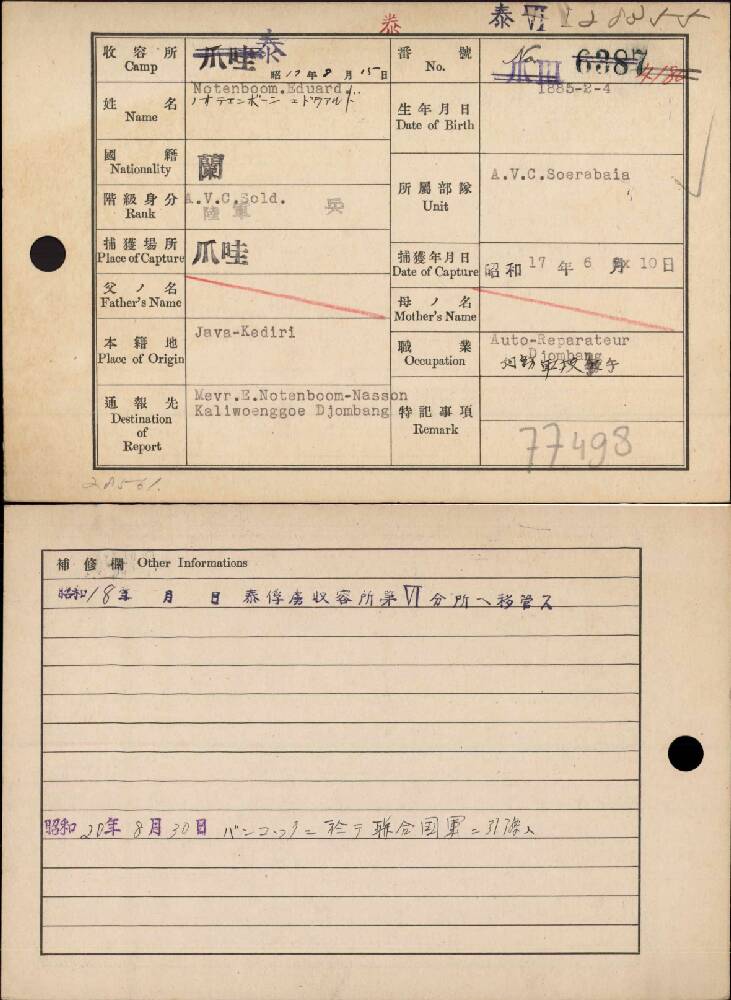 泰
泰 VI I 28255
收容所 Camp 爪哇 泰 昭17年8月15日
番號 No. No. 爪III 6387 4186
姓名 Name Notenboom.Eduard.
ノオテエンボーン エドウアルド
生年月日 Date of Birth 1885-2-4
國籍 Nationality 蘭
階級身分 Rank A.V.C.Sold.
陸軍 兵
所屬部隊 Unit A.V.C.Soerabaia
捕獲場所 Place of Capture 爪哇
捕獲年月日 Date of Capture 昭和17年6月10日
父ノ名 Father's Name
母ノ名 Mother's Name
本籍地 Place of Origin Java-Kediri
職業 Occupation Auto-Reparateur
Djombang
通報先 Destination of Report Mevr.E.Notenboom-Nasson
Kaliwoenggoe Djombang
特記事項 Remark
77498
補修欄 Other Informations
昭和18年 月 日 泰俘虜収容所第VI分所ヘ移管ス
昭和20年8月30日 バンコックニ於テ聯合国軍ニ引渡ス